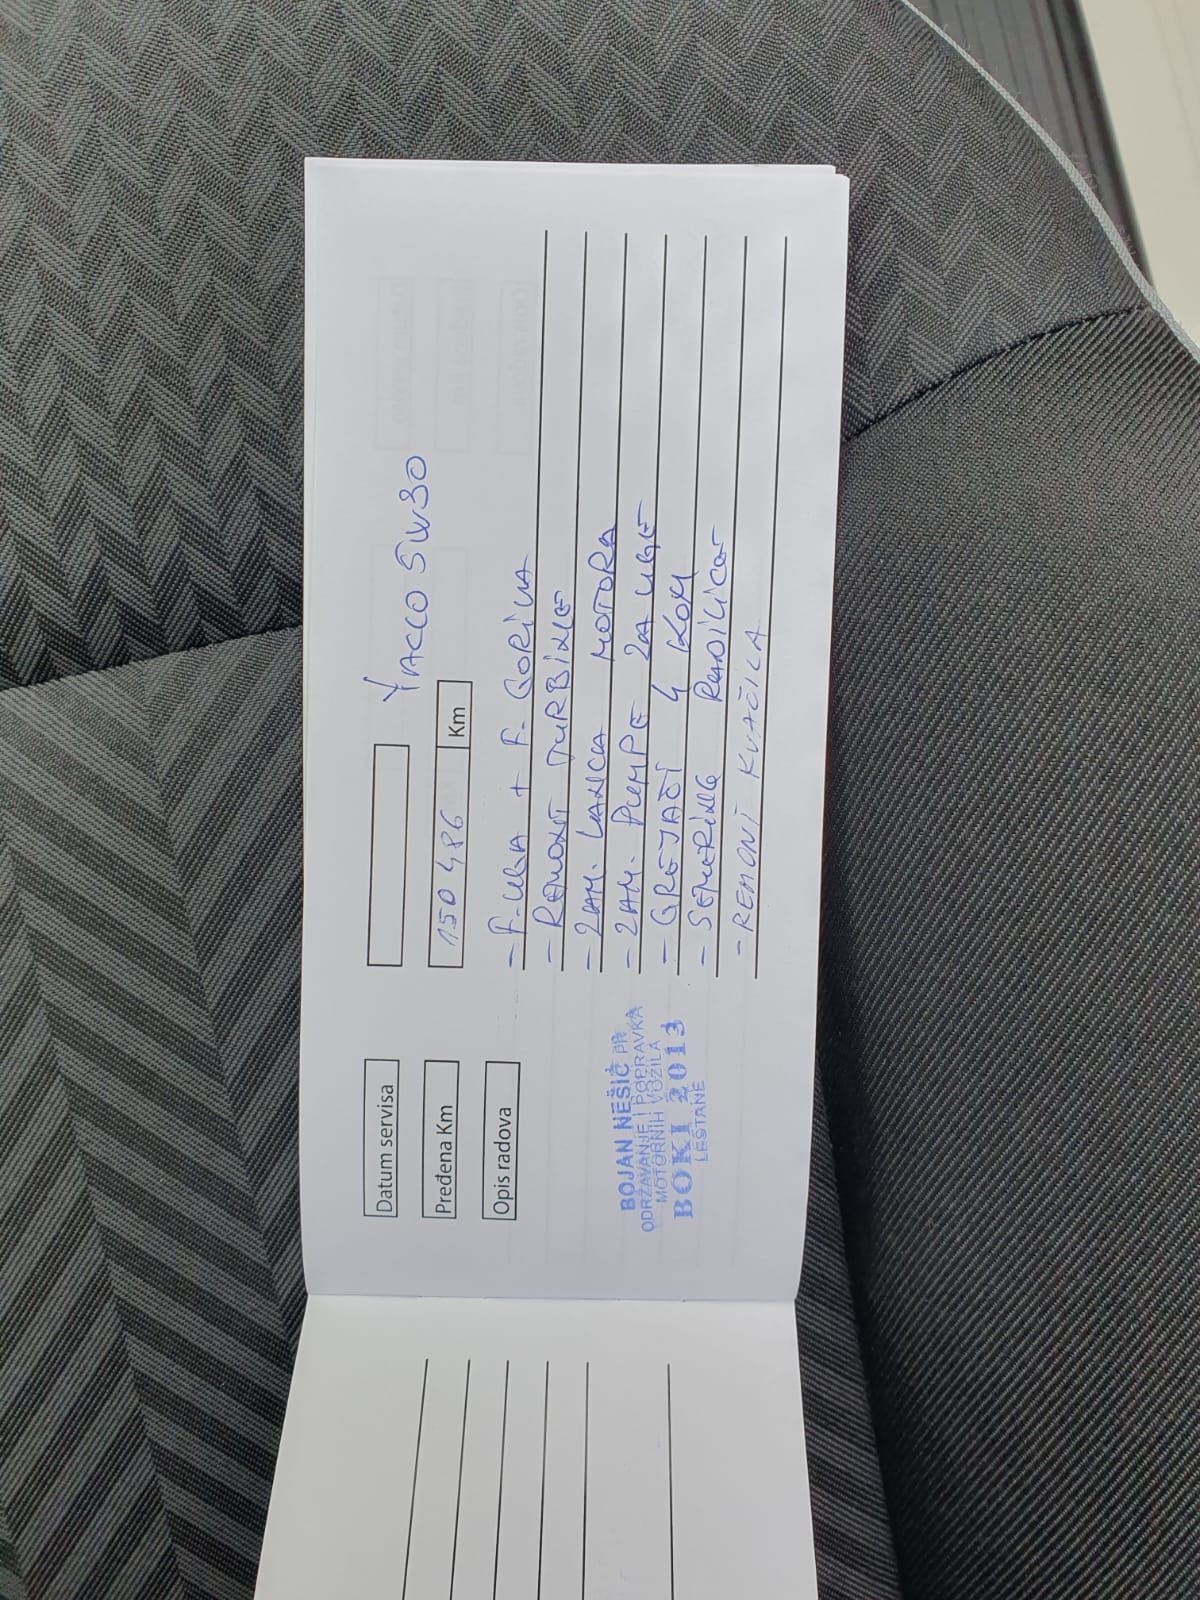 Datum servisa
YACCO 5W30
Pređena Km
150 486
Km
Opis radova
- F. ULJA + F. GORIVA
- REMONT TURBINE
- ZAM. LANCA MOTORA
- ZAM. PUMPE ZA ULJE
- GREJAČI 4 KOM
- SEMERING RADILICE
- REMONT KVAČILA
BOJAN NEŠIĆ PR
ODRŽAVANJE I POPRAVKA
MOTORNIH VOZILA
BOKI 2013
LEŠTANE